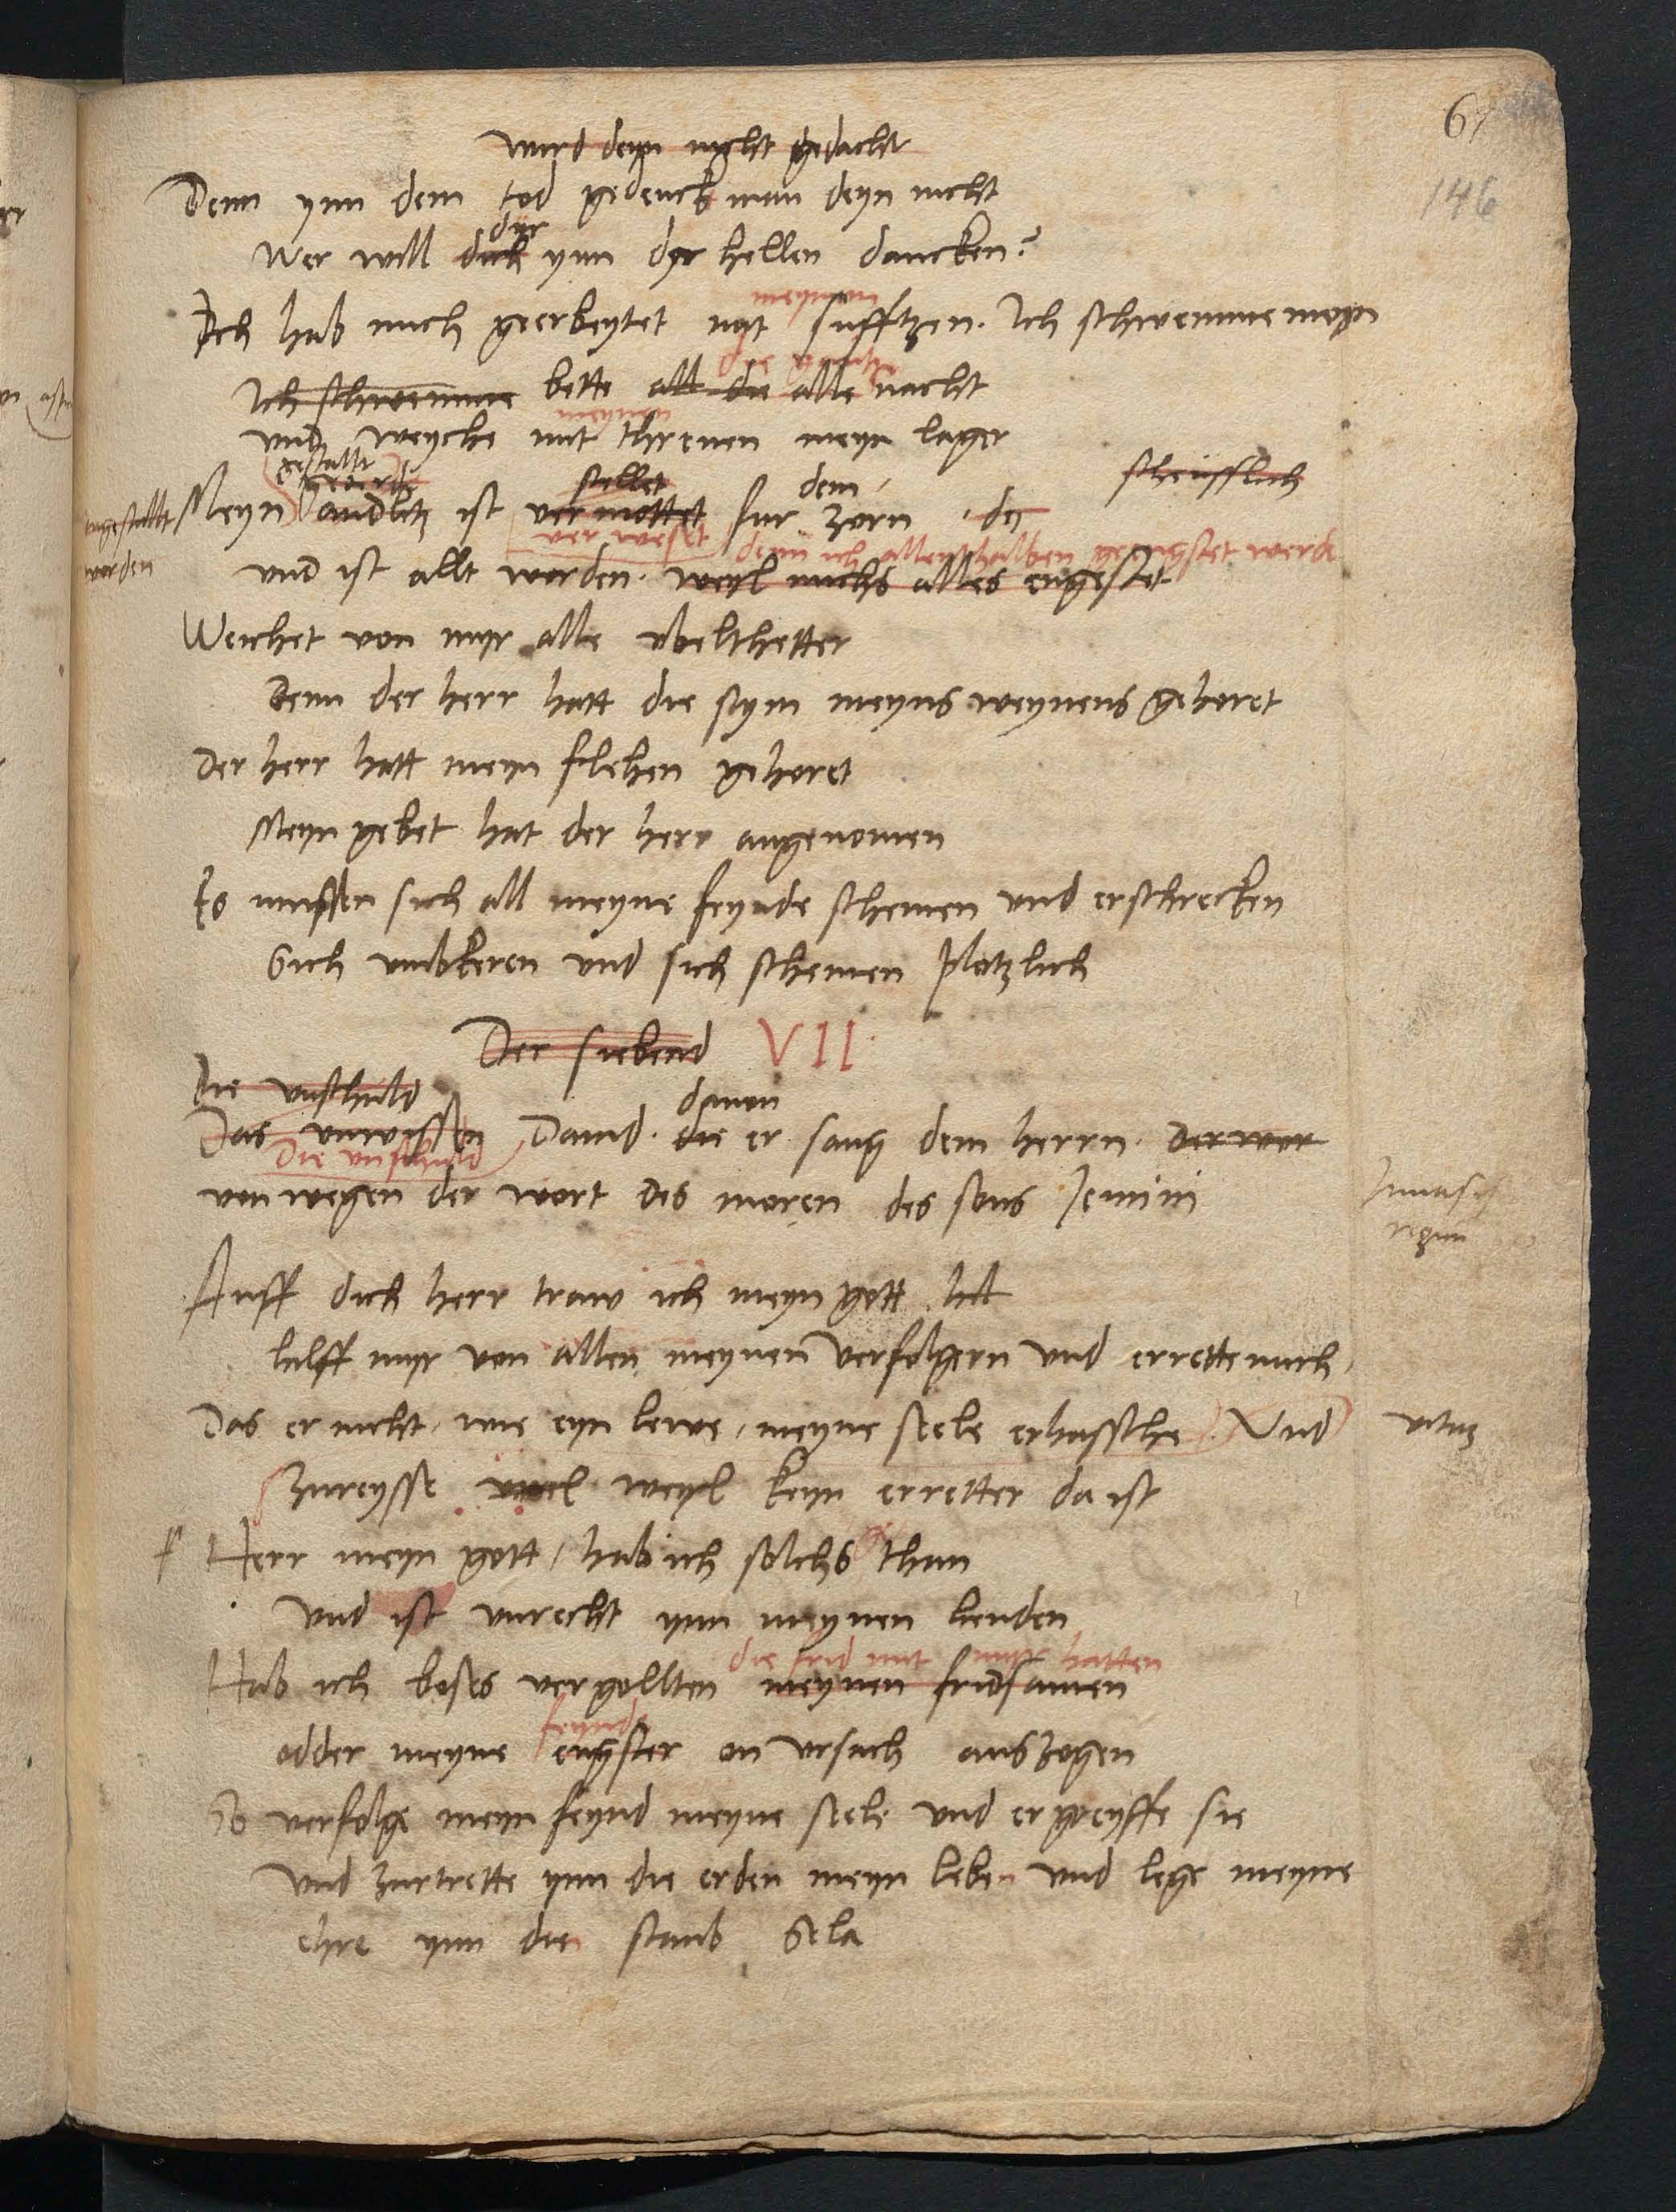 67
146
wird deyn nicht gedacht
Denn ynn dem tod gedenckt man deyn nicht
dyr
Wer will dich ynn der hellen dancken?
meynem
Ich hab mich geerbeytet mit sufftzen. Ich schwemme meyn
die gantze
Ich schwemme bette all die alle nacht
meynen
und weyche mit threnen meyn lager
gestallt
stellet dem scheusslich
Meyn andlitz ist vermottet fur zorn
verwest denn ich allenthalben geengstet werde
worden
und ist allt worden. weyl michs alles engestet
Weichet von myr alle ubelthetter
Denn der herr hatt die stym meyns weynens gehoret
Der herr hatt meyn flehen gehoret
Meyn gebet hat der herr angenomen
Es mussen sich all meyne feynde schemen und erschrecken
Sich umbkeren und sich schemen plotzlich
Der siebend VII
Die unschuld davon
Das unwissen David. die er sang dem herrn. der wor
Die unschuld
von wegen der wort des moren des sons Jemini
Auff dich herr traw ich meyn gott hil
hilff myr von allen meynen verfolgern und errette mich
Das er nicht, wie eyn lewe, meyne seele erhassche. Und
zureysse weyl keyn erretter da ist
Herr meyn gott, hab ich solchs than
und ist unrecht ynn meynen henden
die frid mit myr hatten
Hab ich boses vergollten meynen fridsamen
feynde
odder meyne engster on ursach auszogen
So verfolge meyn feynd meyne seele und ergreyffe sie
und zurtrette ynn die erden meyn leben und lege meyne
ehre ynn den staub Sela